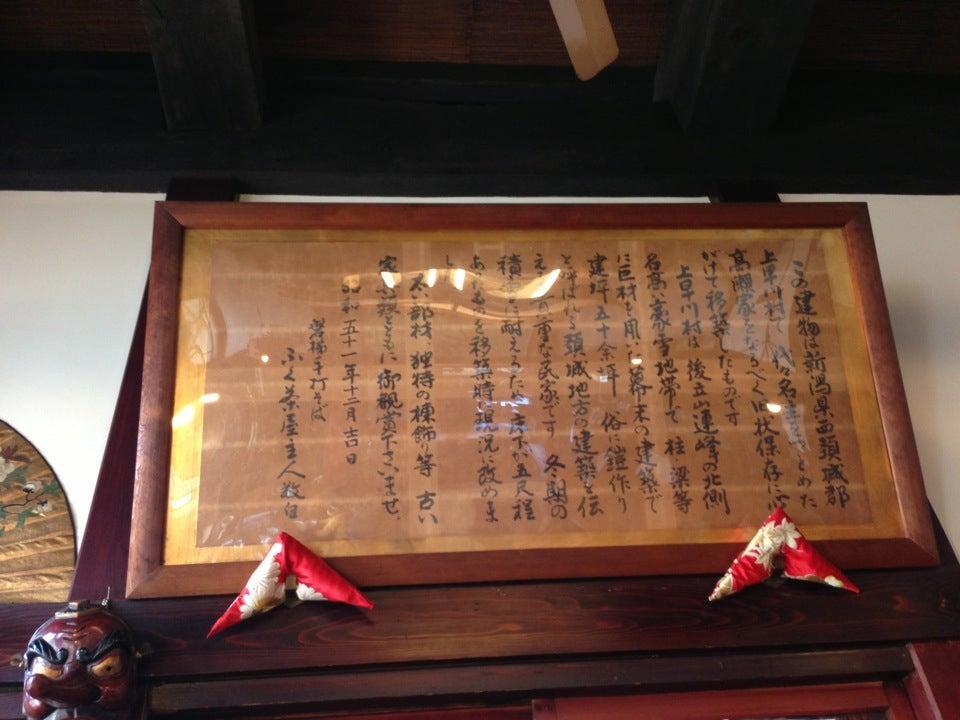 この建物は新潟県西頸城郡
上早川村で代々名主をつとめた
高瀬家となるべく旧状保存に心
がけて移築したものです
上早川村は後立山連峰の北側
名高い豪雪地帯で 柱 梁等
に巨材を用いた幕末の建築で
建坪五十余坪 俗に鎧作り
と呼ばれる頸城地方の建築を伝
える 貴重な民家です 冬期の
積雪に耐えるため 床下が五尺程
ありものを移築時に現況に改めま
した
太い部材 独特の棟飾り等 古い
家 ともに御観賞下さいませ
昭和五十一年十二月吉日
手打そば
ふく茶屋主人敬白